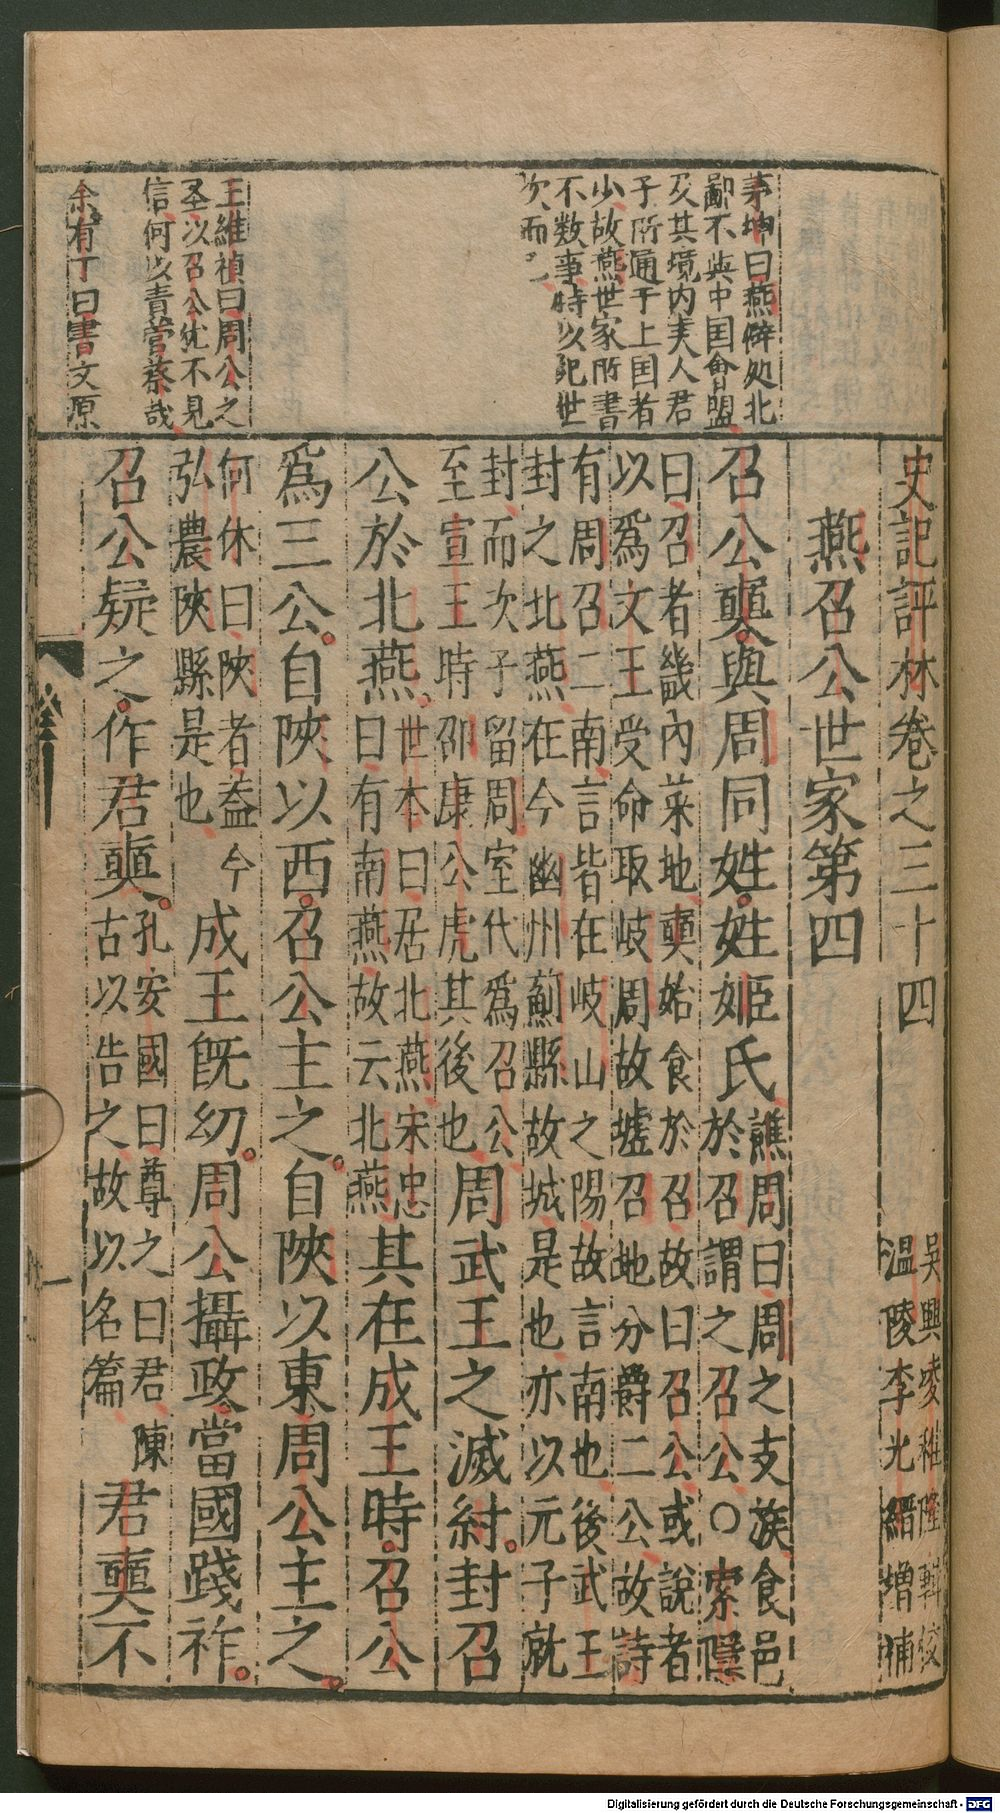 史記評林卷之三十四
吳興凌稚隆輯校
溫陵李光縉增補
燕召公世家第四
召公奭與周同姓姓姬氏
譙周曰周之支族食邑
於召謂之召公○索隱
曰召者畿內菜地奭始食於召故曰召公或說者
以爲文王受命取岐周故墟召地分爵二公故詩
有周召二南言皆在岐山之陽故言南也後武王
封之北燕在今幽州薊縣故城是也亦以元子就
封而次子留周室代爲召公
至宣王時邵康公虎其後也
周武王之滅紂封召
公於北燕
世本曰居北燕宋忠
曰有南燕故云北燕
其在成王時召公
爲三公自陝以西召公主之自陝以東周公主之
何休曰陝者葢今
弘農陝縣是也
成王旣幼周公攝政當國踐祚
召公疑之作君奭
孔安國曰尊之曰君陳
古以告之故以名篇
君奭不
茅坤曰燕僻処北
鄙不與中国會盟
及其境内美人君
子所通于上国者
少故燕世家所書
不数事時以紀世
次而已
王維禎曰周公之
圣以召公犹不見
信何以責管蔡哉
余有丁曰書文原
一
Digitalisierung gefördert durch die Deutsche Forschungsgemeinschaft - DFG